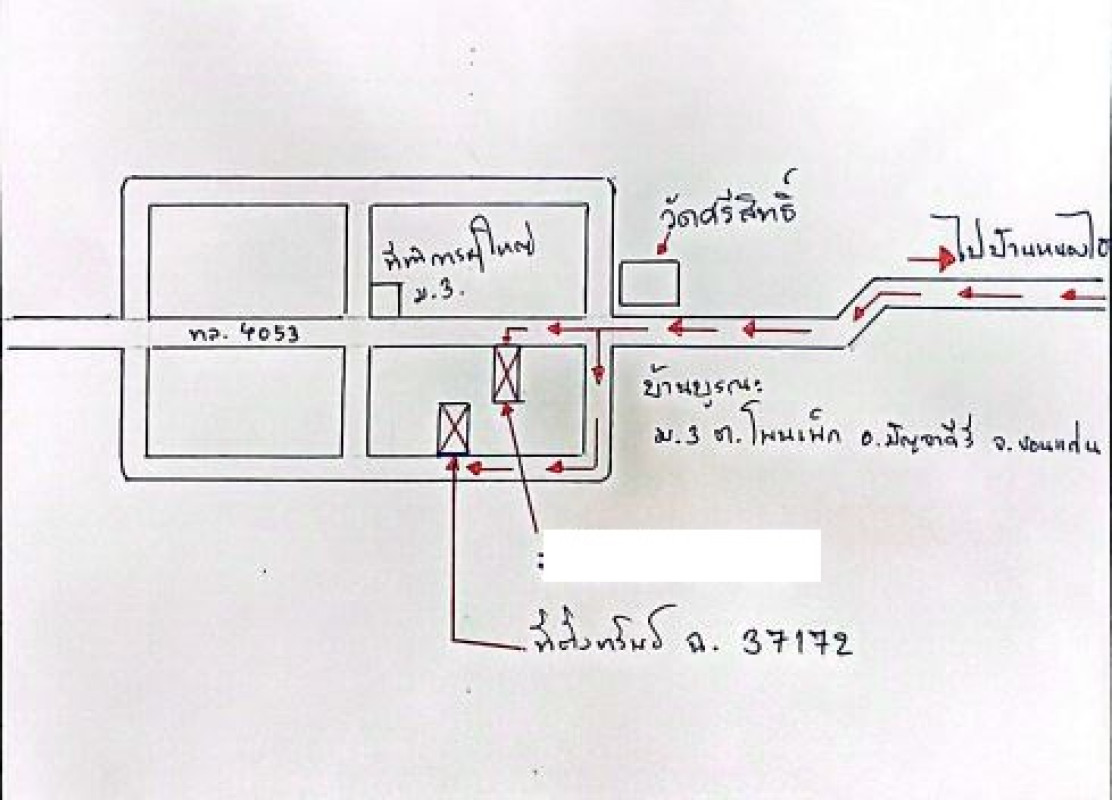 วัดศรีสิทธิ์
ไปบ้านหนองไ
ที่ทำการผู้ใหญ่
ม.3.
ทล. 4053
บ้านบูรณะ
ม.3 ต.โพนเพ็ก อ.มัญจาคีรี จ.ขอนแก่น
:
ที่ตั้งทรัพย์ ฉ. 37172